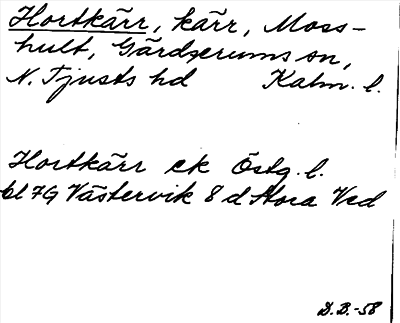 Hortkärr, kärr, Moss-
hult, Gärdserums sn,
N. Tjusts hd Kalm. l.
Hortkärr ek Östg. l.
bl 7G Västervik 8 d Stora Ved
D.B.-58